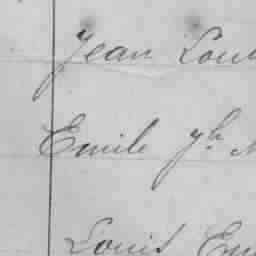 Jean Lou
Emile
Louis Em